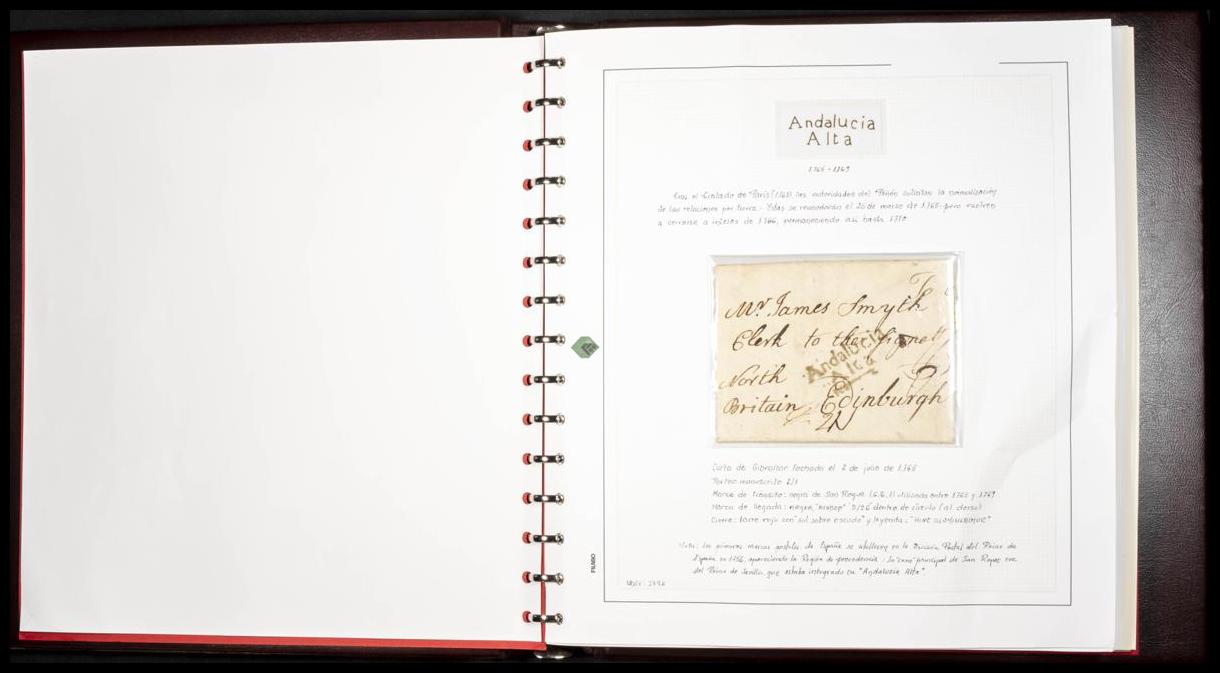 Andalucia
Alta
1765 - 1769
Tras el Tratado de París (1763), las autoridades del Peñón solicitan la normalización
de las relaciones por tierra. Estas se reanudarán el 25 de marzo de 1765, pero vuelven
a cerrarse a inicios de 1766, permaneciendo así hasta
To
Mr James Smyth
Clerk to the Signet
Andalucia
Alta
North
Britain Edinburgh
2N
Carta de Gibraltar fechada el 2 de julio de 1765
Porteo manuscrito 2/1
Marca de tránsito: negra de San Roque (G.G.1) utilizada entre 1765 y 1769
Marca de llegada: negra, "Bishop" 5/26 dentro de círculo (al dorso)
Cierre: lacre rojo con "sol sobre escudo" y leyenda:
Nota: Las primeras marcas postales de España se establecen en la División Postal del Reino de
España en 1756, apareciendo la Región de procedencia. La "caja" principal de San Roque era
del Reino de Sevilla, que estaba integrado en "Andalucía Alta"
FILABO